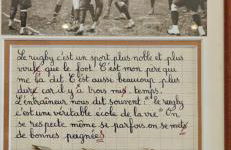 Le rugby c'est un sport plus noble et plus
voulé que le foot. C'est mon père qui
me l'a dit. C'est aussi beaucoup plus
dure car il y a trois mis-temps.
L'entraîneur nous dit souvent : "le rugby
c'est une véritable école de la vie". On
se respecte même si parfois on se mets
de bonnes pagnées